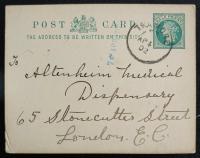 POST CARD
THE ADDRESS TO BE WRITTEN ON THIS SIDE
To
Altenheim Medical
Dispensary
65 Stonecutter Street
London. E.C.